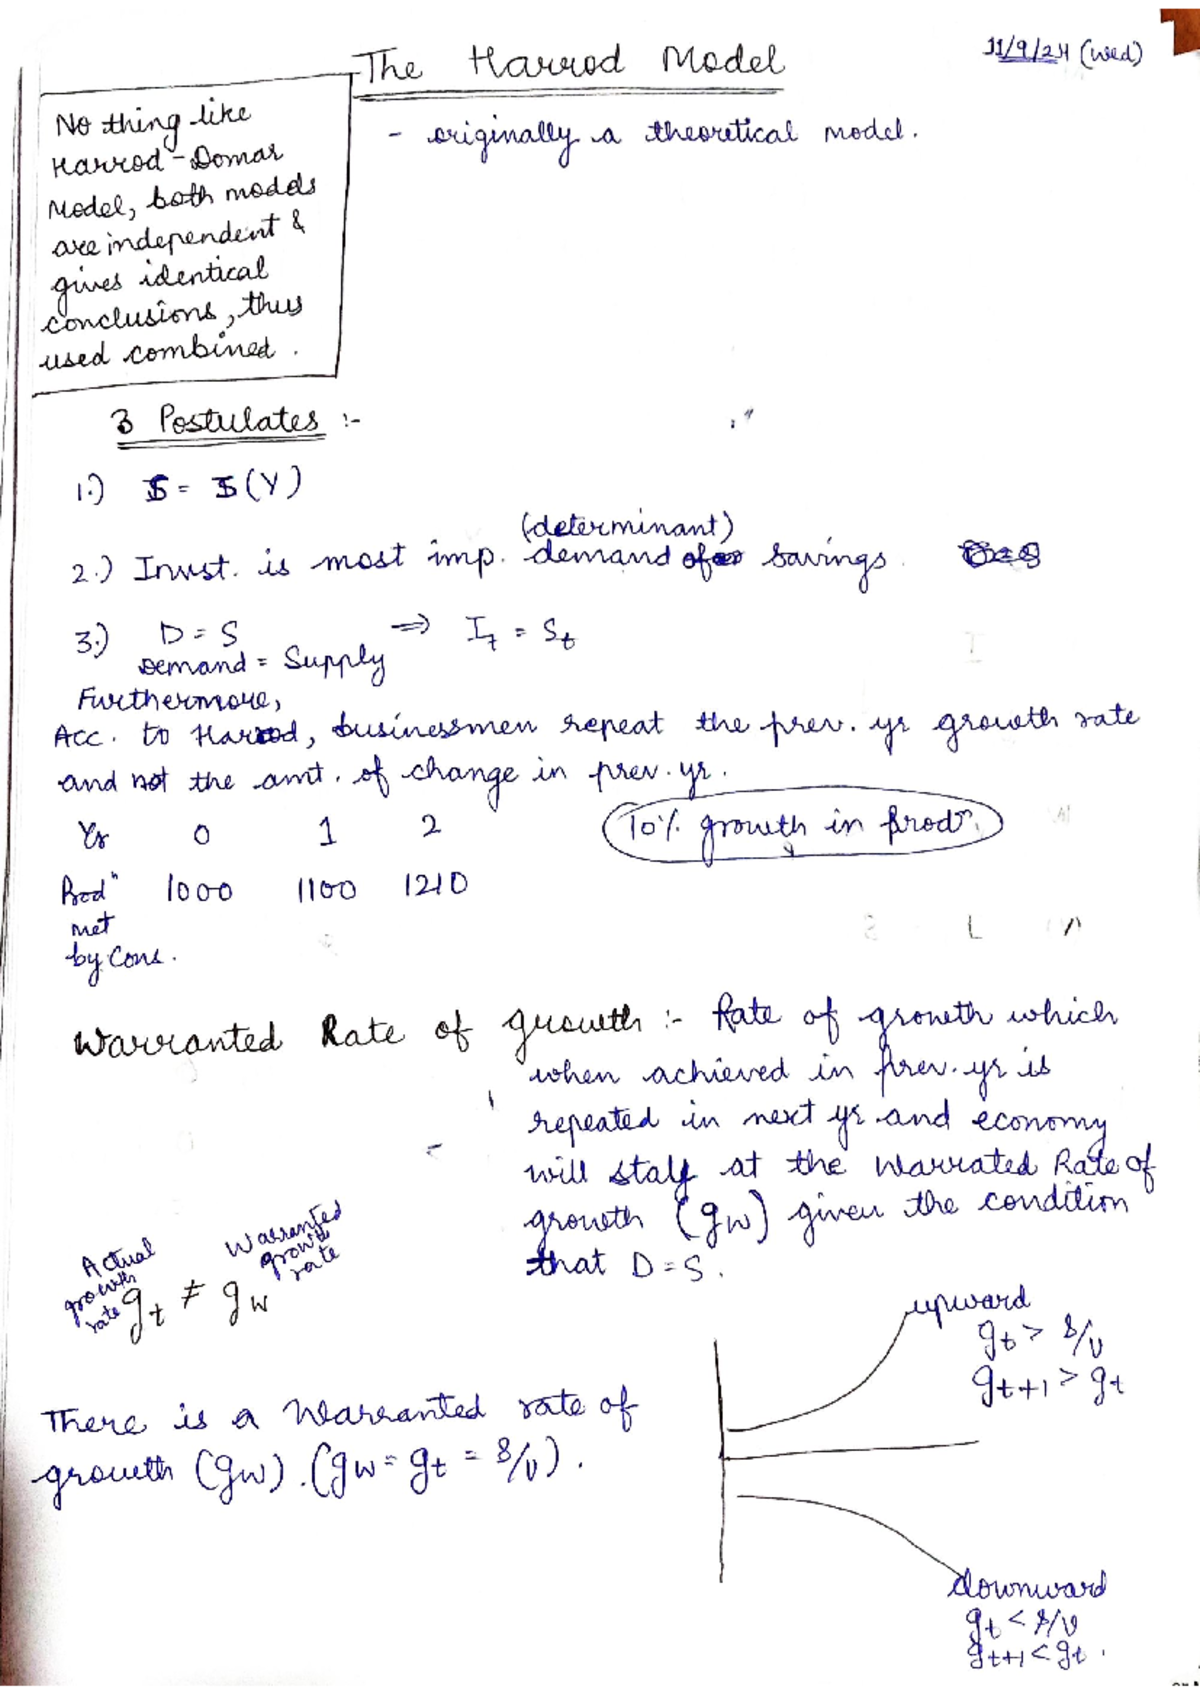 The Harrod Model
11/9/24 (Wed)
- originally a theoretical model.
No thing like
Harrod-Domar
Model, both models
are independent &
gives identical
conclusions, thus
used combined.
3 Postulates :-
1.) S = S(Y)
(determinant)
2.) Invst. is most imp. demand of savings.
3.) D = S ⇒ It = St
Demand = Supply
Furthermore,
Acc. to Harrod, businessmen repeat the prev. yr growth rate
and not the amt. of change in prev. yr.
Yr 0 1 2
10% growth in prodn.
Prodn 1000 1100 1210
met
by Cons.
Warranted Rate of growth :- Rate of growth which
when achieved in prev. yr is
repeated in next yr and economy
will stay at the Warrated Rate of
growth (gw) given the condition
that D = S.
Actual growth rate
Warranted growth rate
gt ≠ gw
There is a Warranted rate of
growth (gw). (gw = gt = s/v).
upward
gt > s/v
gt+1 > gt
downward
gt < s/v
gt+1 < gt.